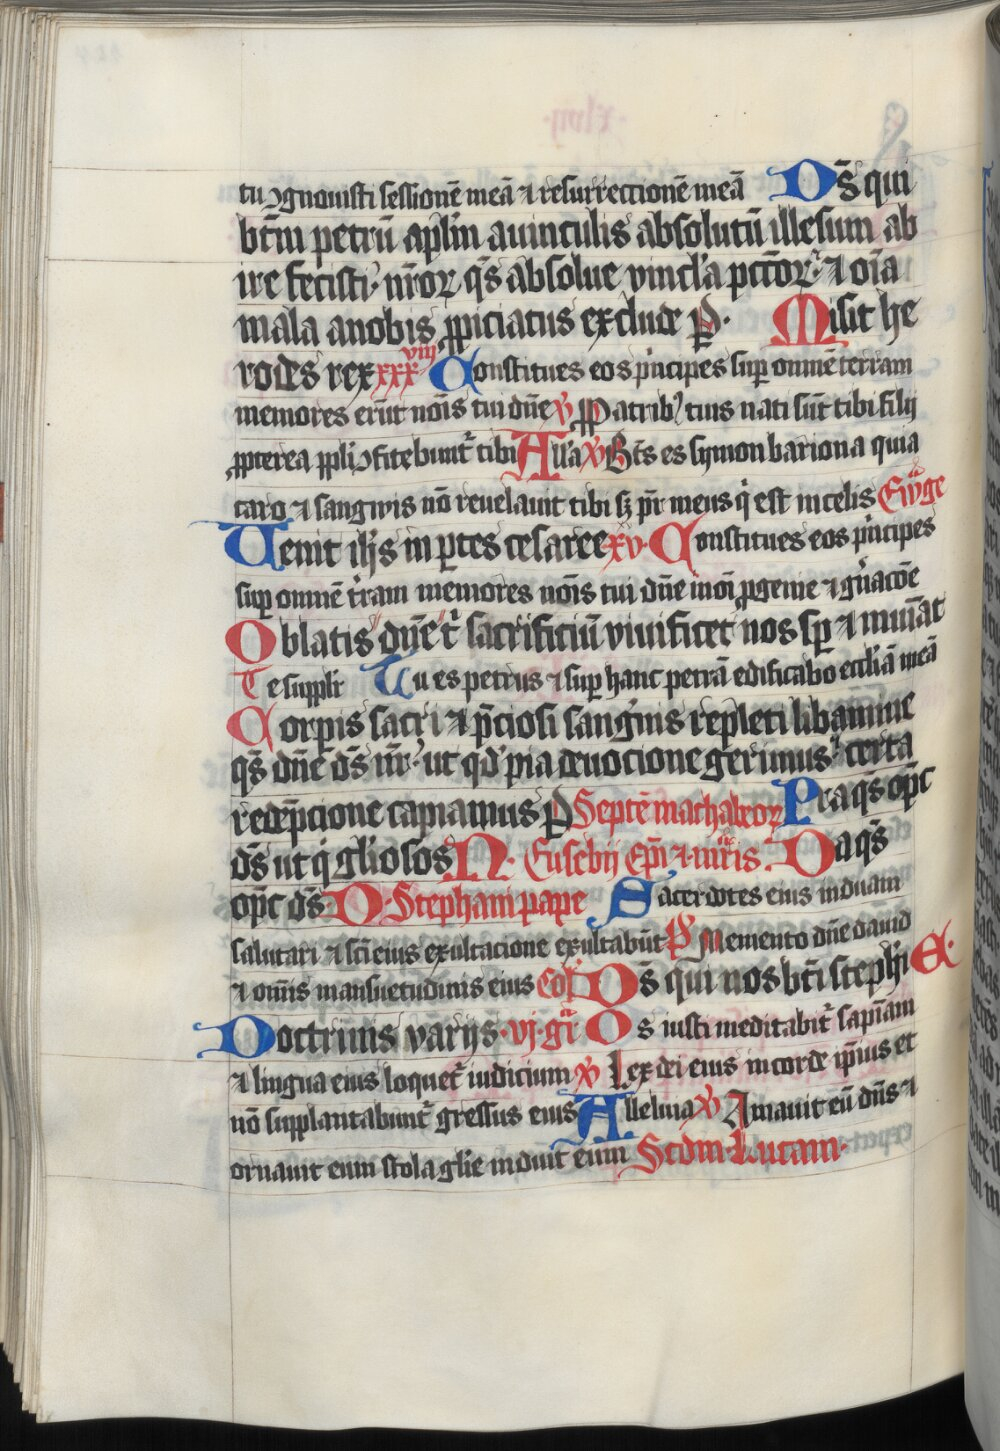 tu ꝯgnouisti sessionē meā ⁊ resurrectionē meā Ds̄ qui
bt̄m petrū apl̄m auinculis absolutū illesum ab
ire fecisti· nr̄oꝝ qs̄ absolue vincl'a pctōꝝ· ⁊ oīa
mala anobis ꝓpiciatus exclude ꝑ· Misit he
rodes rex xxxviii Constitues eos pͥncipes sup omnē terram
memores erūt nōis tui dn̄e ℣ P Patribꝰ tuis nati sūt tibi filij
ꝓpterea ppl'i ꝯfitebunt̄ tibi All'a ℣ Bt̄s es symon bariona quia
caro ⁊ sangwis nō reuelauit tibi sꝫ pr̄ meus qͥ est incelis Ewͣge
Uenit ih̄s in ꝑtes cesaree xv· Constitues eos pͥncipes
sup omnē tr̄am memores nōis tui dn̄e in oī ꝓgenie ⁊ gn̄acōe
Oblatis dn̄e tͥ sacrificiū viuificet nos sp̄ ⁊ muīat
Te suppli Tu es petrus ⁊ sup hanc petrā edificabo eccl'iā meā
Corpis sacri ⁊ p̄ciosi sangͥnis repleti libamine
qs̄ dn̄e ds̄ nr̄· ut qd' pia deuocione gerimus· certa
redēpcione capiamus ꝑ Septē machabeoꝝ Pra qs̄ opc̄
ds̄ ut qͥ gl'iosos N· Eusebij ep̄i ⁊ mr̄is· Da qs̄
opc̄ ds̄ D· Stephani pape Sacerdotes eius induam
salutari ⁊ sc̄i eius exultacione exultabūt P Memento dn̄e dauid
⁊ om̄is mansuetudinis eius Col' Ds̄ qui nos bt̄i steph'i E·
Doctrinis varijs· vj· gr̄ Os iusti meditabit̄ sapīam
⁊ lingua eius loquet̄ iudicium ℣ Lex dei eius in corde ip̄ius et
nō supplantabunt̄ gressus eius Alleluia ℣ Amauit eū dn̄s ⁊
ornauit eum stola gl'ie induit eum Scdm· Lucam·